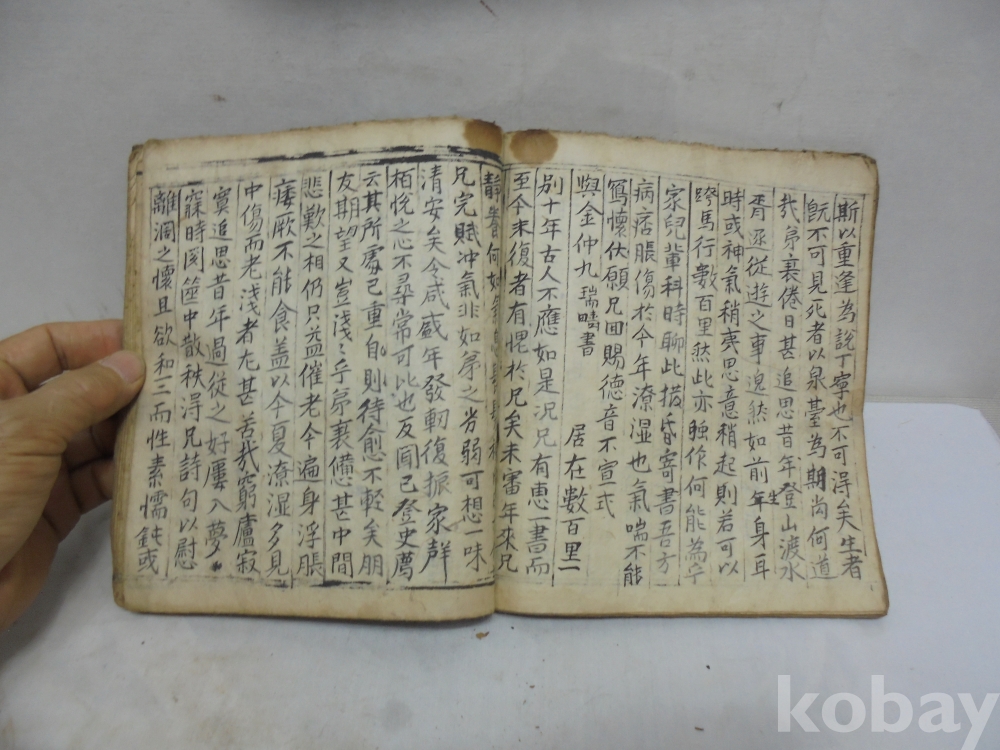 斯以重逢為說丁寧也不可得矣生者
旣不可見死者以泉臺為期尚何道
㦲弟衰倦日甚追思昔年登山渡水
胥逐從遊之事邈然如前生年身耳
時或神氣稍爽思意稍起則若可以
跨馬行數百里然此亦雖作何能為乎
家兒輩科時聊此措昏寄書吾方
病痞脹傷於今年潦湿也氣喘不能
寫懷伏願兄回賜德音不宣式
與金仲九瑞疇書
居在數百里一
别十年古人不應如是况兄有惠一書而
至今未復者有愧於兄矣未審年來兄
靜養何如
兄完賦冲氣非如弟之劣弱可想一味
清安矣令咸盛年發軔復振家聲
栢悅之心不尋常可比也友圓已登史薦
云其所處已重自則待愈不輕矣朋
友期望又豈淺〻乎弟衰備甚中間
悲歎之相仍只益催老今遍身浮脹
痿厥不能食盖以今夏潦湿多見
中傷而老淺者尢甚苦㦲窮廬寂
寞追思昔年過従之好屢入夢
寐時閱篋中散秩淂兄詩句以慰
離濶之懷且欲和三而性素懦鈍或
kobay